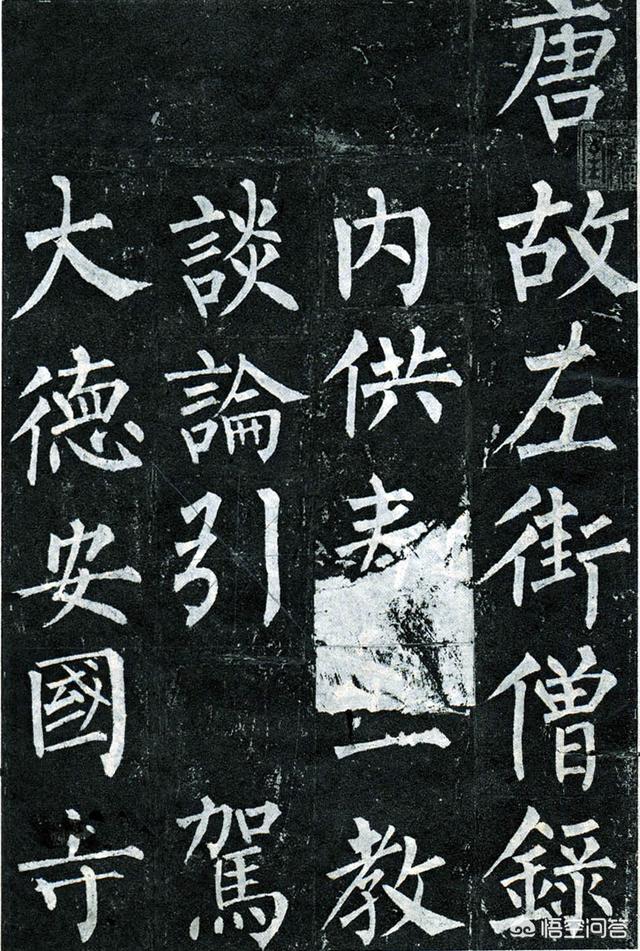 唐故左街僧錄
內供奉三教
談論引駕
大德安國寺
悟空问答